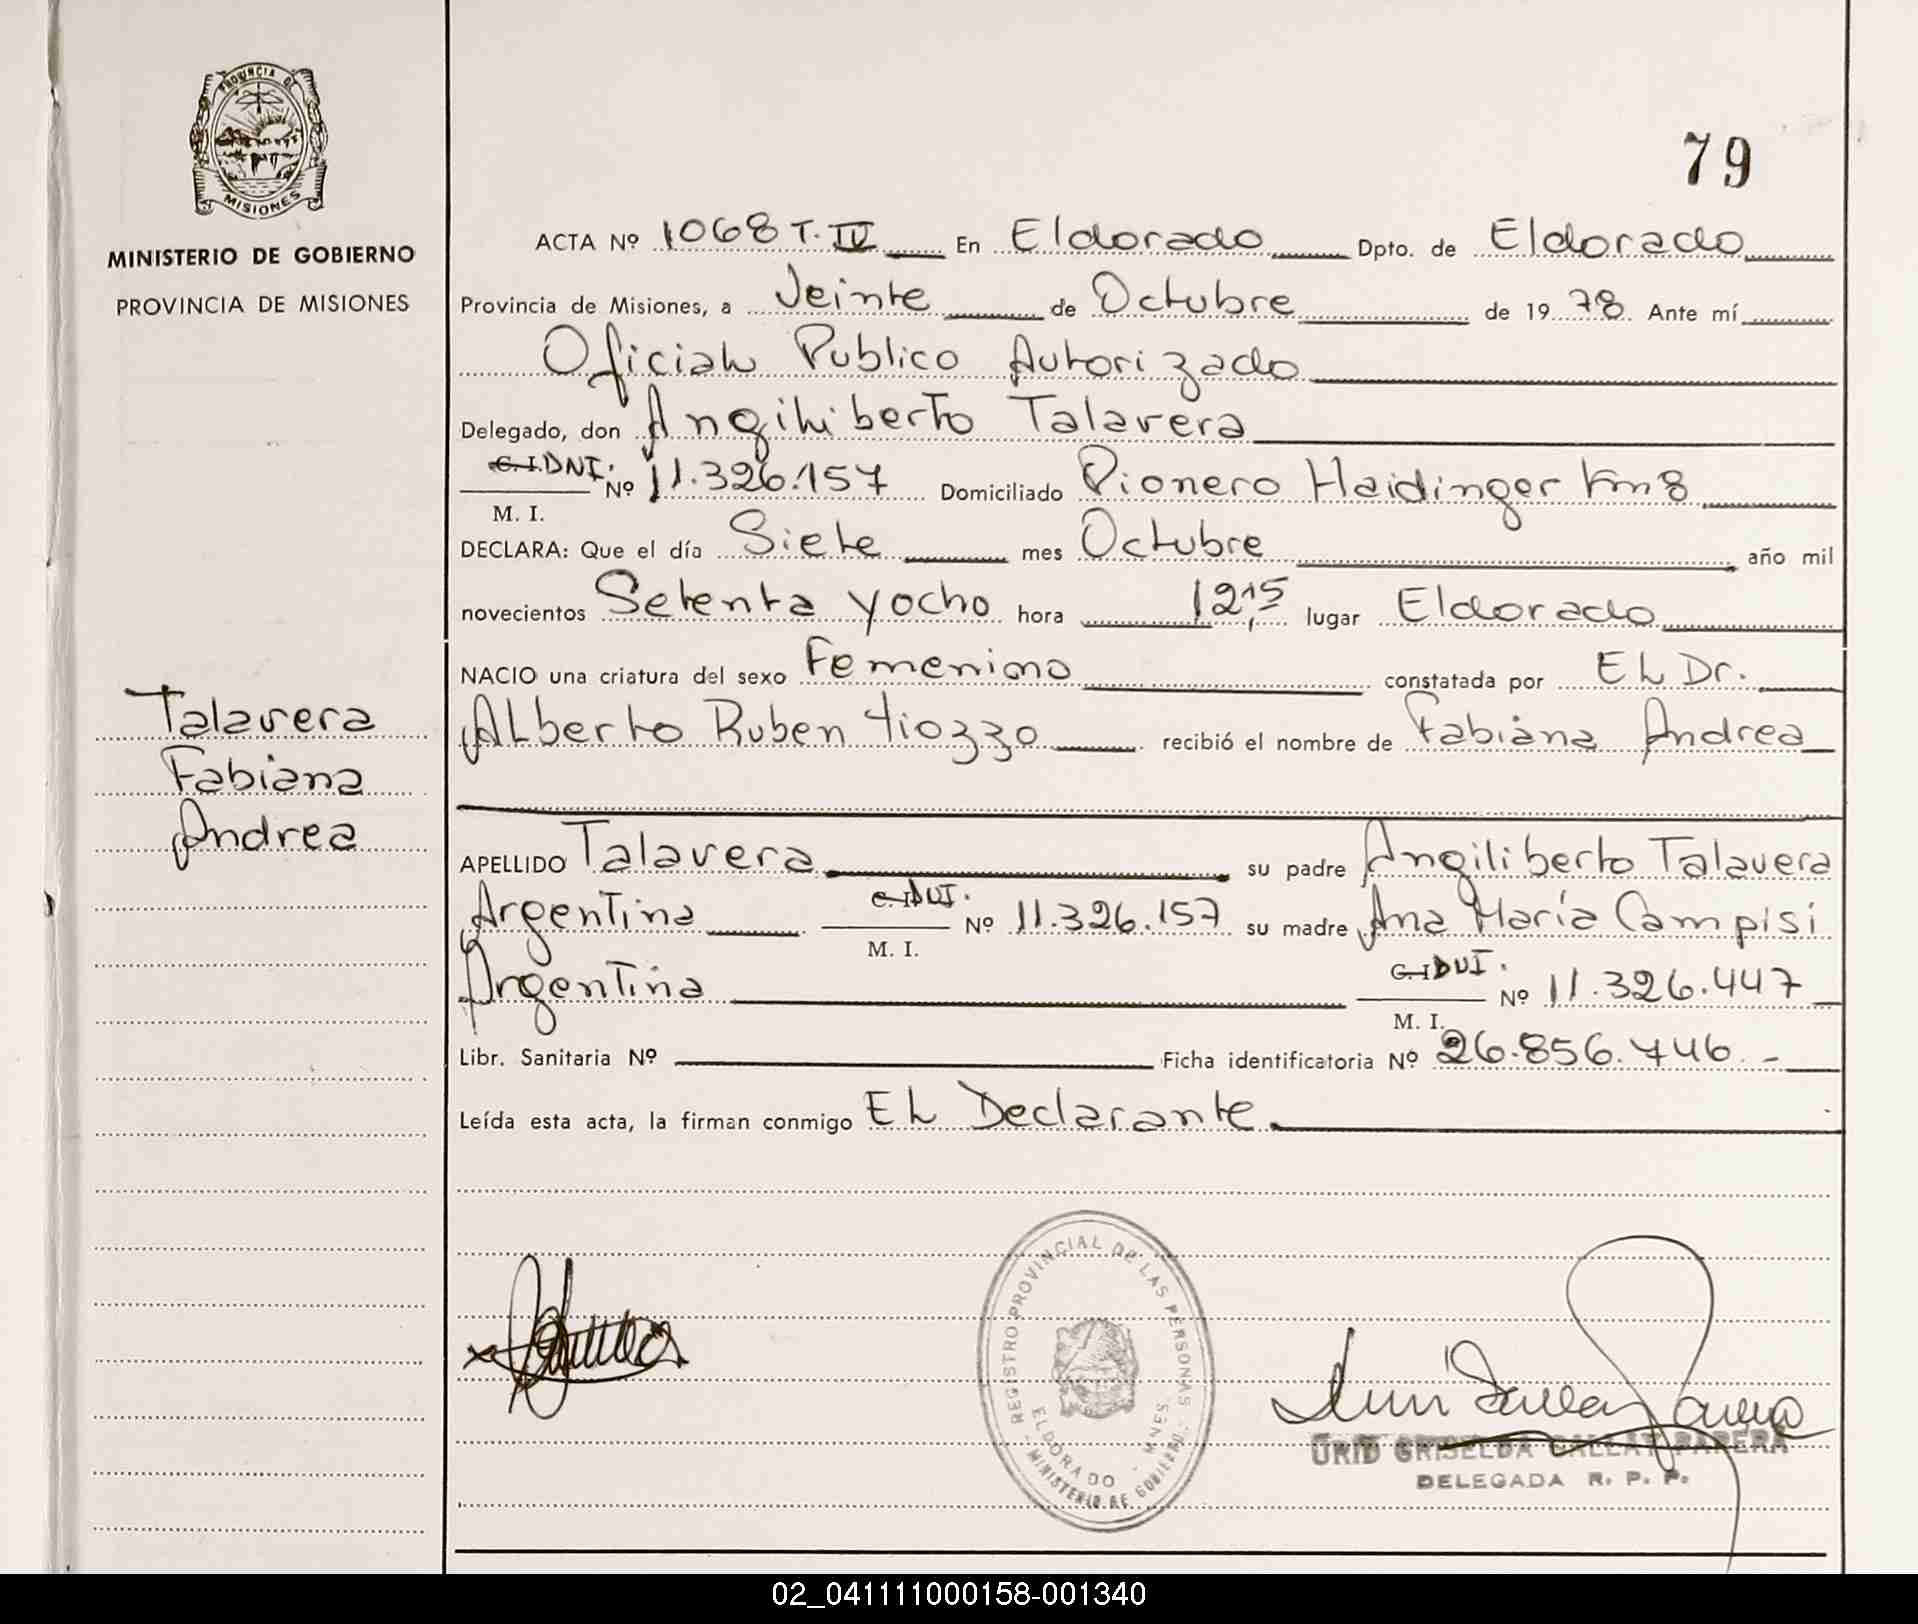 PROVINCIA DE
MISIONES
MINISTERIO DE GOBIERNO
PROVINCIA DE MISIONES
79
ACTA Nº 1068 T. IV En Eldorado Dpto. de Eldorado
Provincia de Misiones, a Veinte de Octubre de 1978. Ante mí
Oficial Publico Autorizado
Delegado, don Angiliberto Talavera
C.I. DNI. Nº 11.326.157 Domiciliado Pionero Haidinger Km 8
M. I.
DECLARA: Que el día Siete mes Octubre año mil
novecientos Setenta y ocho hora 12,15 lugar Eldorado
NACIO una criatura del sexo Femenino constatada por El Dr.
Alberto Ruben Tiozzo recibió el nombre de Fabiana Andrea
Talavera
Fabiana
Andrea
APELLIDO Talavera su padre Angiliberto Talavera
Argentina C.I. DNI. Nº 11.326.157 su madre Ana María Campisi
M. I.
Argentina C.I DNI. Nº 11.326.447
M. I.
Libr. Sanitaria Nº Ficha identificatoria Nº 26.856.746.-
Leída esta acta, la firman conmigo El Declarante
REGISTRO PROVINCIAL DE LAS PERSONAS
ELDORADO - MNES.
- MINISTERIO DE GOBIERNO -
GRISELDA PARERA
DELEGADA R. P. P.
02_041111000158-001340